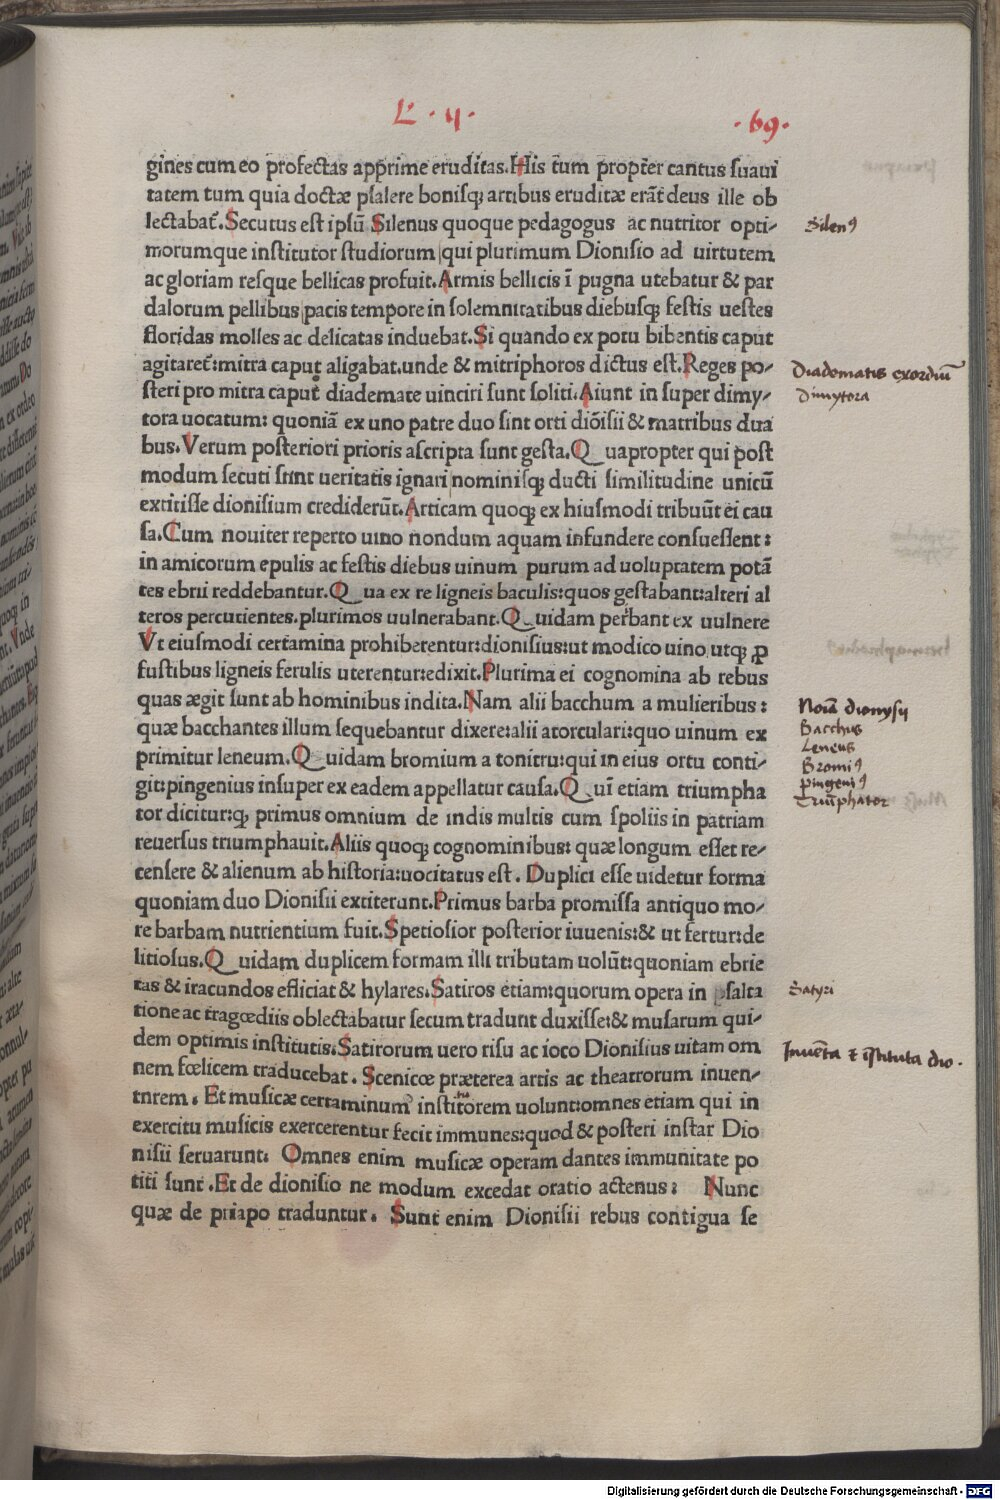 L. · ij ·
· 69 ·
gines cum eo profectas apprime eruditas. His tum propter cantus suaui
tatem tum quia doctæ psalere bonisq; artibus eruditæ erãt deus ille ob
lectabat. Secutus est ipsũ Silenus quoque pedagogus ac nutritor opti-
Silen9
morumque institutor studiorum qui plurimum Dionisio ad uirtutem
ac gloriam resque bellicas profuit. Armis bellicis ĩ pugna utebatur & par
dalorum pellibus pacis tempore in solemnitatibus diebusq; festis uestes
floridas molles ac delicatas induebat. Si quando ex potu bibentis caput
agitaret: mitra caput aligabat. unde & mitriphoros dictus est. Reges po-
Diadematis exordiũ
steri pro mitra caput diademate uinciri sunt soliti. Aiunt in super dimy-
Dimytora
tora uocatum: quoniã ex uno patre duo sint orti diõisii & matribus dua
bus. Verum posteriori prioris ascripta sunt gesta. Quapropter qui post
modum secuti sunt ueritatis ignari nominisq; ducti similitudine unicũ
extitisse dionisium crediderũt. Articam quoq; ex hiusmodi tribuũt ei cau
sa. Cum nouiter reperto uino nondum aquam infundere consuessent:
in amicorum epulis ac festis diebus uinum purum ad uoluptatem potã
tes ebrii reddebantur. Qua ex re ligneis baculis: quos gestabant: alteri al
teros percutientes. plurimos uulnerabant. Quidam peribant ex uulnere
Vt eiusmodi certamina prohiberentur: dionisius: ut modico uino utq; ꝓ
fustibus ligneis ferulis uterentur: edixit. Plurima ei cognomina ab rebus
quas ægit sunt ab hominibus indita. Nam alii bacchum a mulieribus:
Noĩa dionysij
quæ bacchantes illum sequebantur dixere: alii a torculari: quo uinum ex
Bacchus
primitur leneum. Quidam bromium a tonitru: qui in eius ortu conti-
Leneus
Bromi9
git: pingenius insuper ex eadem appellatur causa. Quĩ etiam triumpha
pingeni9
Triũphator
tor dicitur: q; primus omnium de indis multis cum spoliis in patriam
reuersus triumphauit. Aliis quoq; cognominibus: quæ longum esset re-
censere & alienum ab historia: uocitatus est. Duplici esse uidetur forma
quoniam duo Dionisii extiterunt. Primus barba promissa antiquo mo-
re barbam nutrientium fuit. Spetiosior posterior iuuenis: & ut fertur: de
litiosus. Quidam duplicem formam illi tributam uolũt: quoniam ebrie
tas & iracundos efficiat & hylares. Satiros etiam: quorum opera in psalta
Satyri
tione ac tragœdiis oblectabatur secum tradunt duxisse: & musarum qui-
dem optimis institutis. Satirorum uero risu ac ioco Dionisius uitam om
Inuẽta & ĩstituta dio.
nem fœlicem traducebat. Scenicœ præterea artis ac theatrorum inuen-
torem. Et musicæ certaminum institutorem uolunt: omnes etiam qui in
exercitu musicis exercerentur fecit immunes: quod & posteri instar Dio
nisii seruarunt: Omnes enim musicæ operam dantes immunitate po
titi sunt. Et de dionisio ne modum excedat oratio actenus: Nunc
quæ de priapo traduntur. Sunt enim Dionisii rebus contigua se
Digitalisierung gefördert durch die Deutsche Forschungsgemeinschaft - DFG